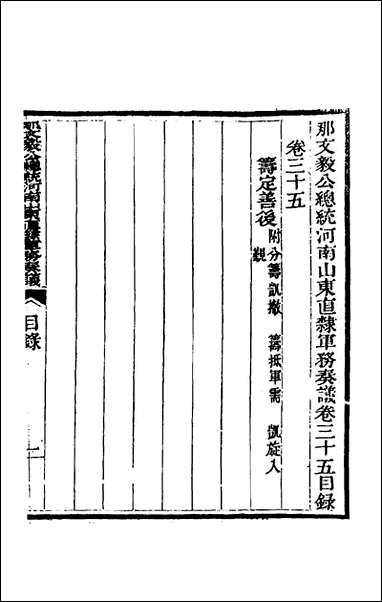 那文毅公總統河南山東直隸軍務奏議卷三十五目錄
卷三十五
籌定善後附分籌凱撤 籌抵軍需 凱旋入
覲
那文毅公總統河南山東直隸軍務奏議
目錄